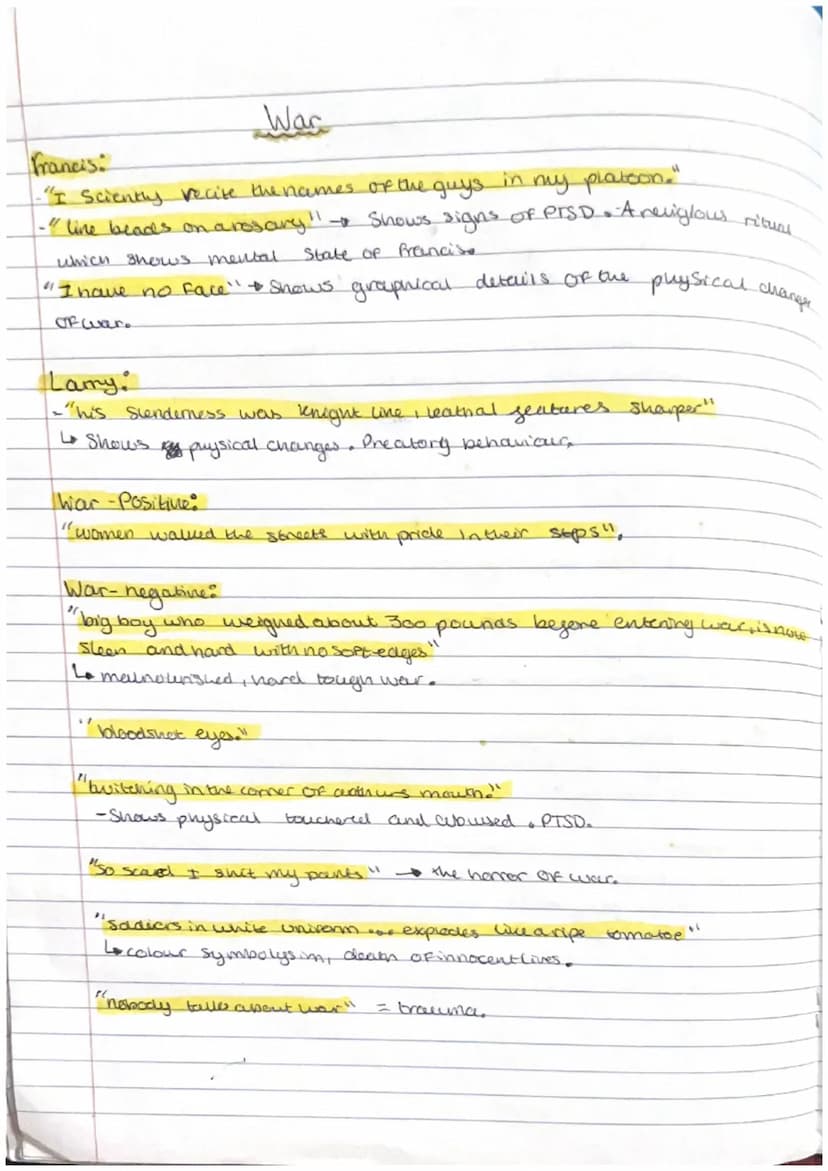 War
Francis:
- "I Sciently recite the names of the guys in my platoon."
- "like beads on a rosary" → Shows signs of PTSD. A religious ritual
which shows mental State of Francis.
"I have no face" → Shows graphical details of the physical changes
of war.
Larry:
- "his Slenderness was knight like, leathal features sharper"
↳ Shows physical changes. Preatory behaviour.
War - Positive:
"women walked the streets with pride in their steps".
War - negative:
"big boy who weighed about 300 pounds before entering war, is now
Sleen and hard with no soft edges"
↳ malnourished, hard tough war.
"bloodshot eyes."
"twitching in the corner of arthurs mouth."
- Shows physical touchered and abused. PTSD.
"So scared I shit my pants" → the horror of war.
"Soldiers in white uniform ... explodes like a ripe tomatoe"
↳ colour symbolysim, death of innocent lives.
"nobody talks about war" = trauma.